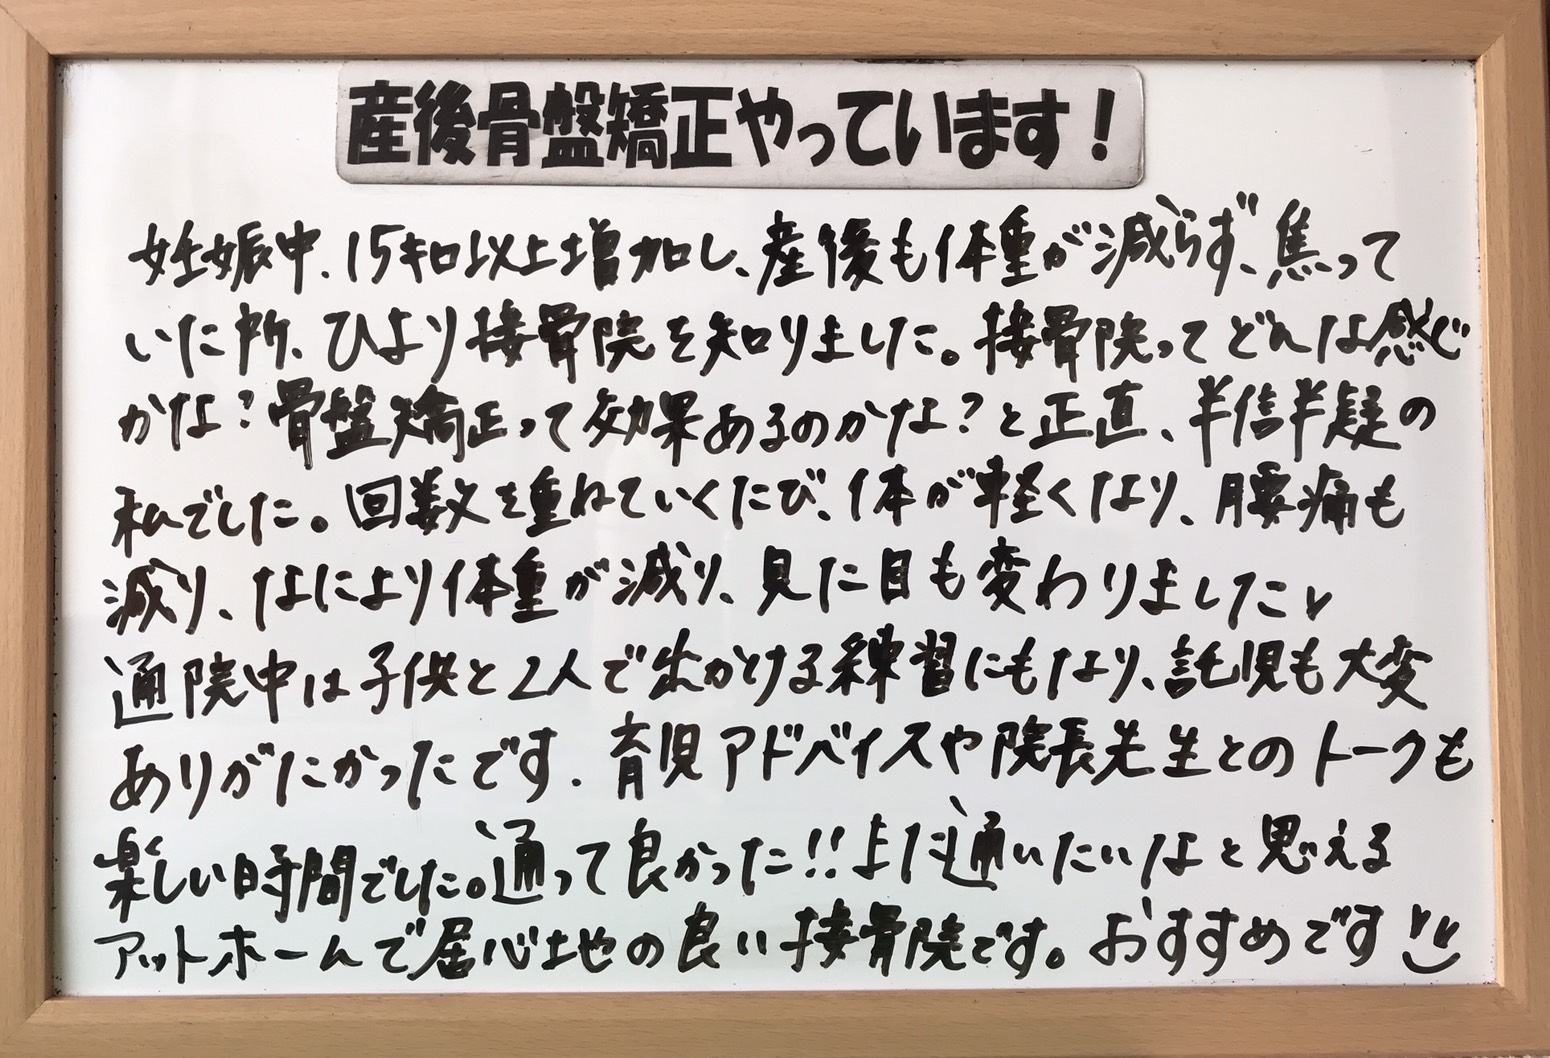 産後骨盤矯正やっています!
妊娠中、15キロ以上増加し、産後も体重が減らず、焦って
いた所、ひより接骨院を知りました。接骨院ってどんな感じ
かな?骨盤矯正って効果あるのかな?と正直、半信半疑の
私でした。回数を重ねていくたび、体が軽くなり、腰痛も
減り、なにより体重が減り、見た目も変わりました
通院中は子供と2人で出かける練習にもなり、託児も大変
ありがたかったです。育児アドバイスや院長先生とのトークも
楽しい時間でした。通って良かった!!また通いたいなと思える
アットホームで居心地の良い接骨院です。おすすめです